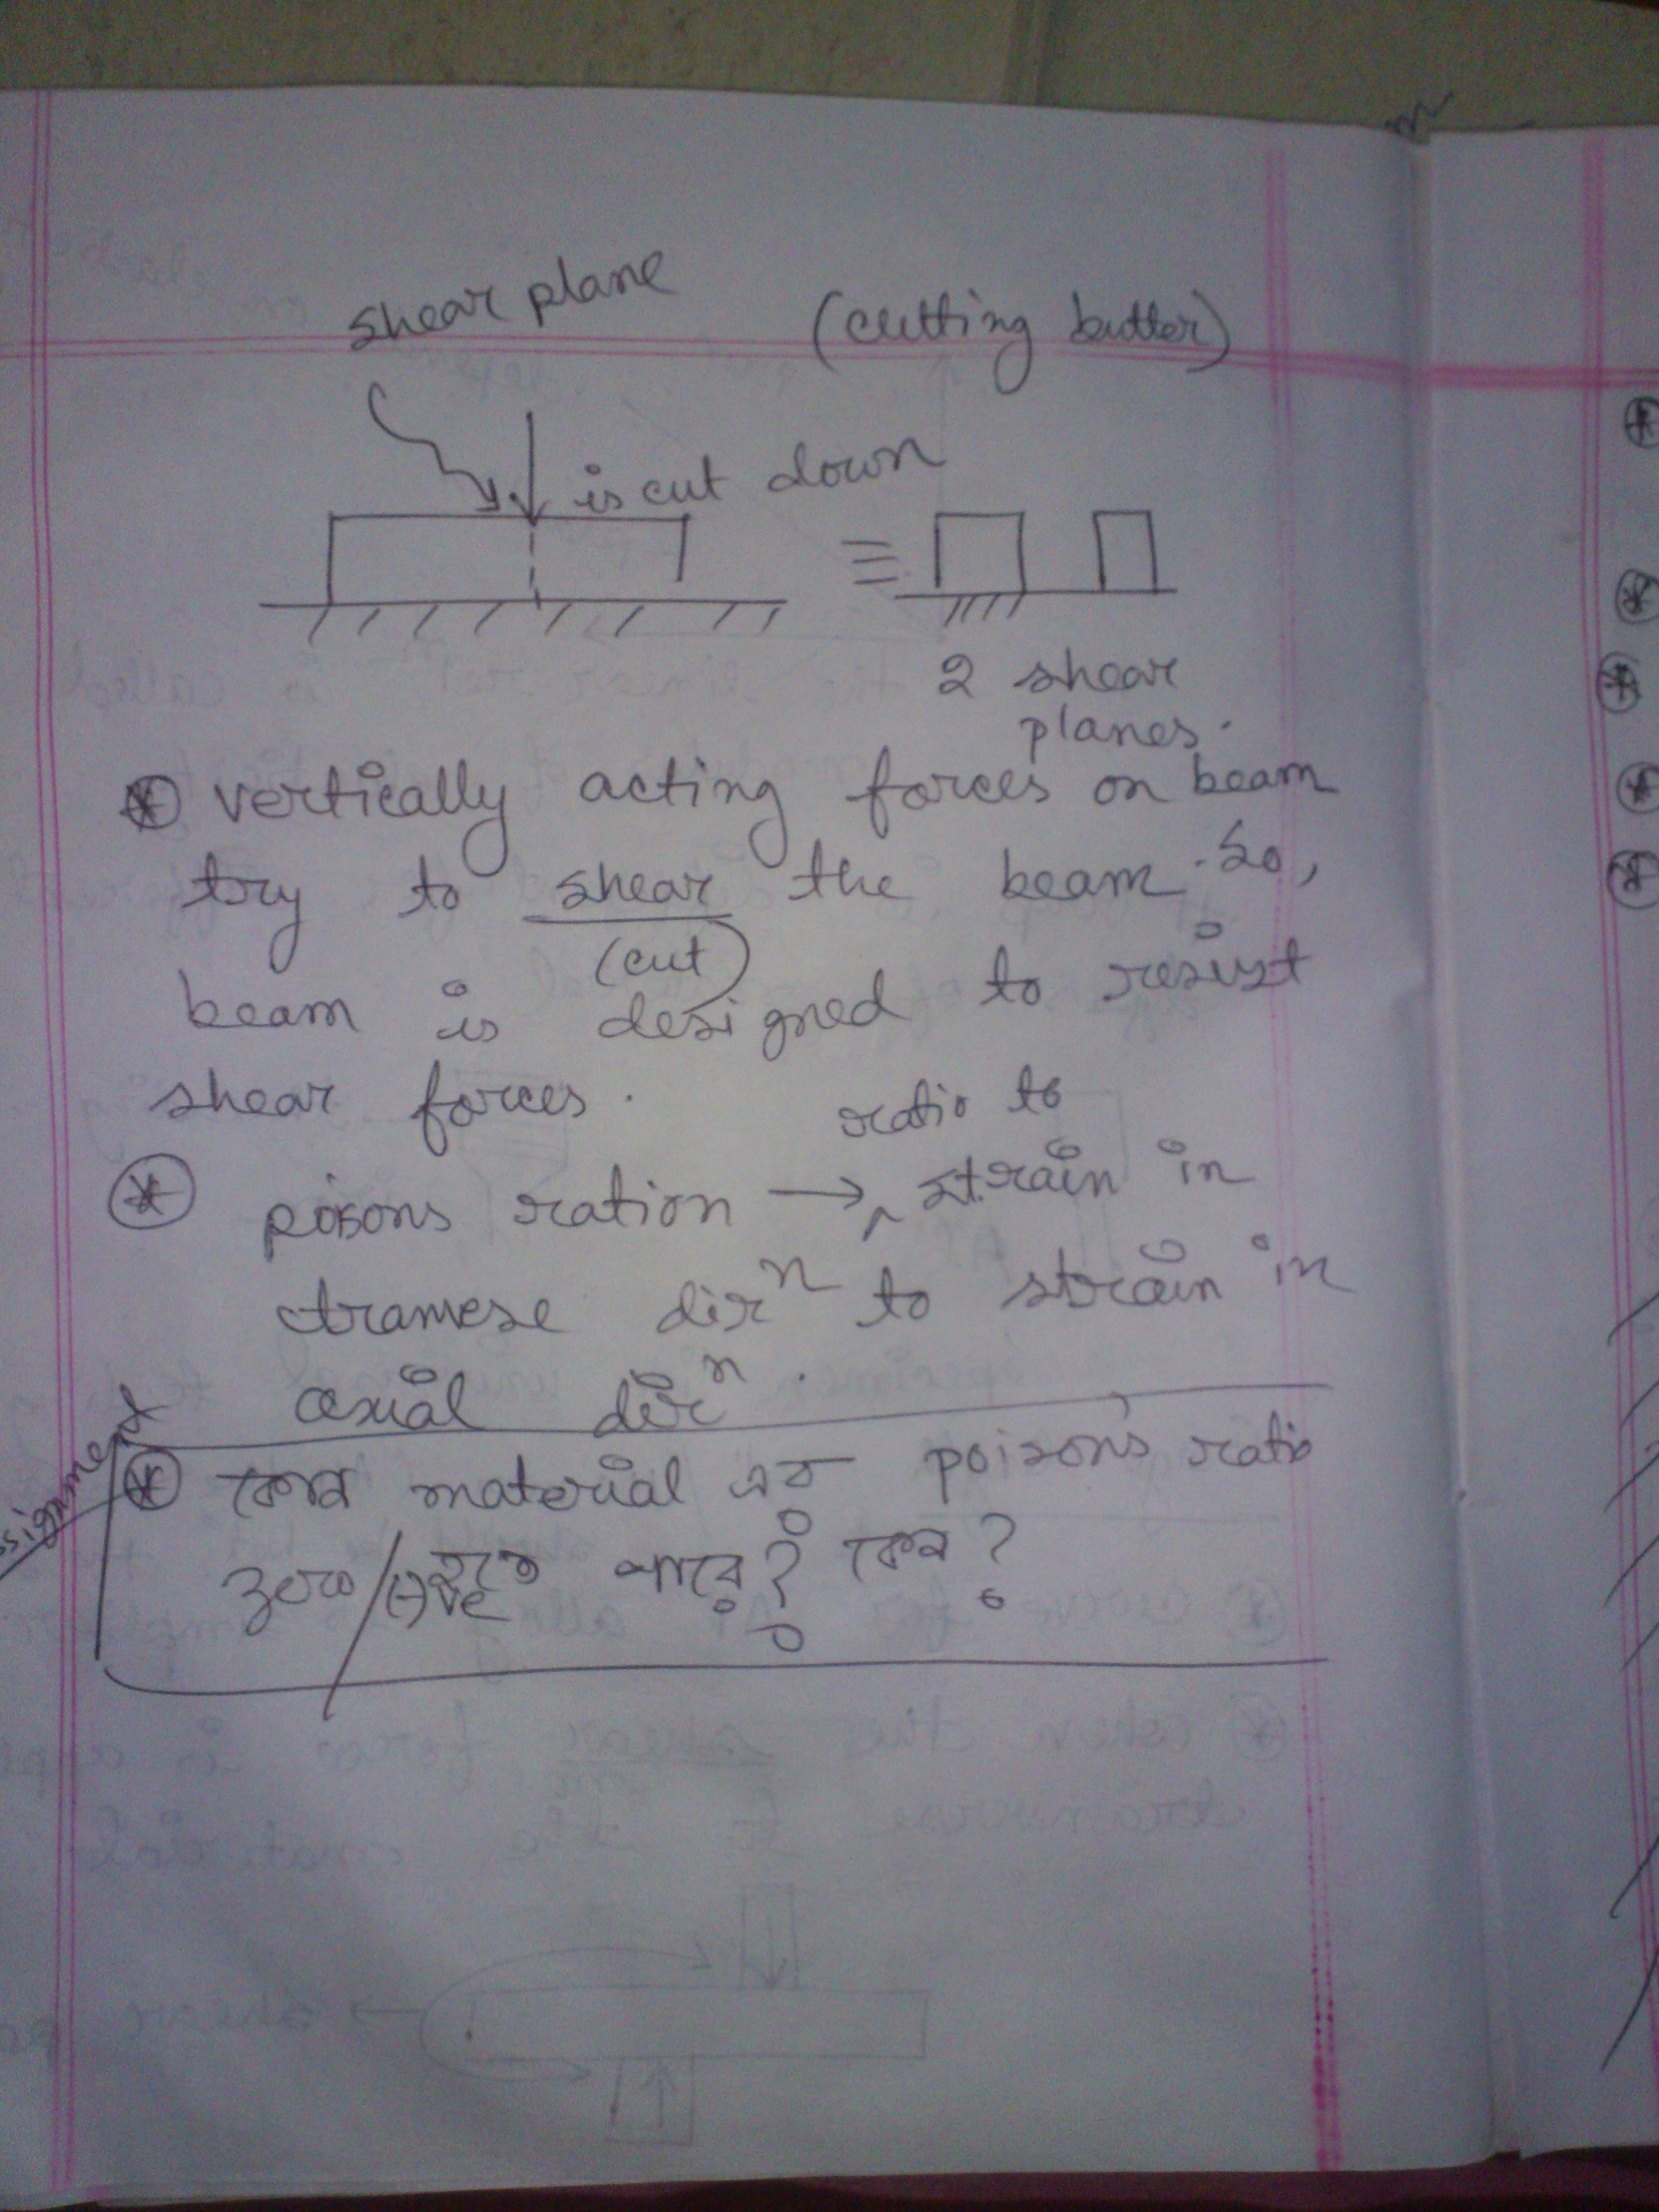 shear plane (cutting butter)
is cut down
2 shear
planes.
vertically acting forces on beam
try to shear the beam. So,
(cut)
beam is designed to resist
shear forces.
ratio to
poisons ration → strain in
tranverse dirⁿ to strain in
axial dirⁿ.
Assignment
কোন material এর poison's ratio
zero/(-)ve হতে পারে? কেন?